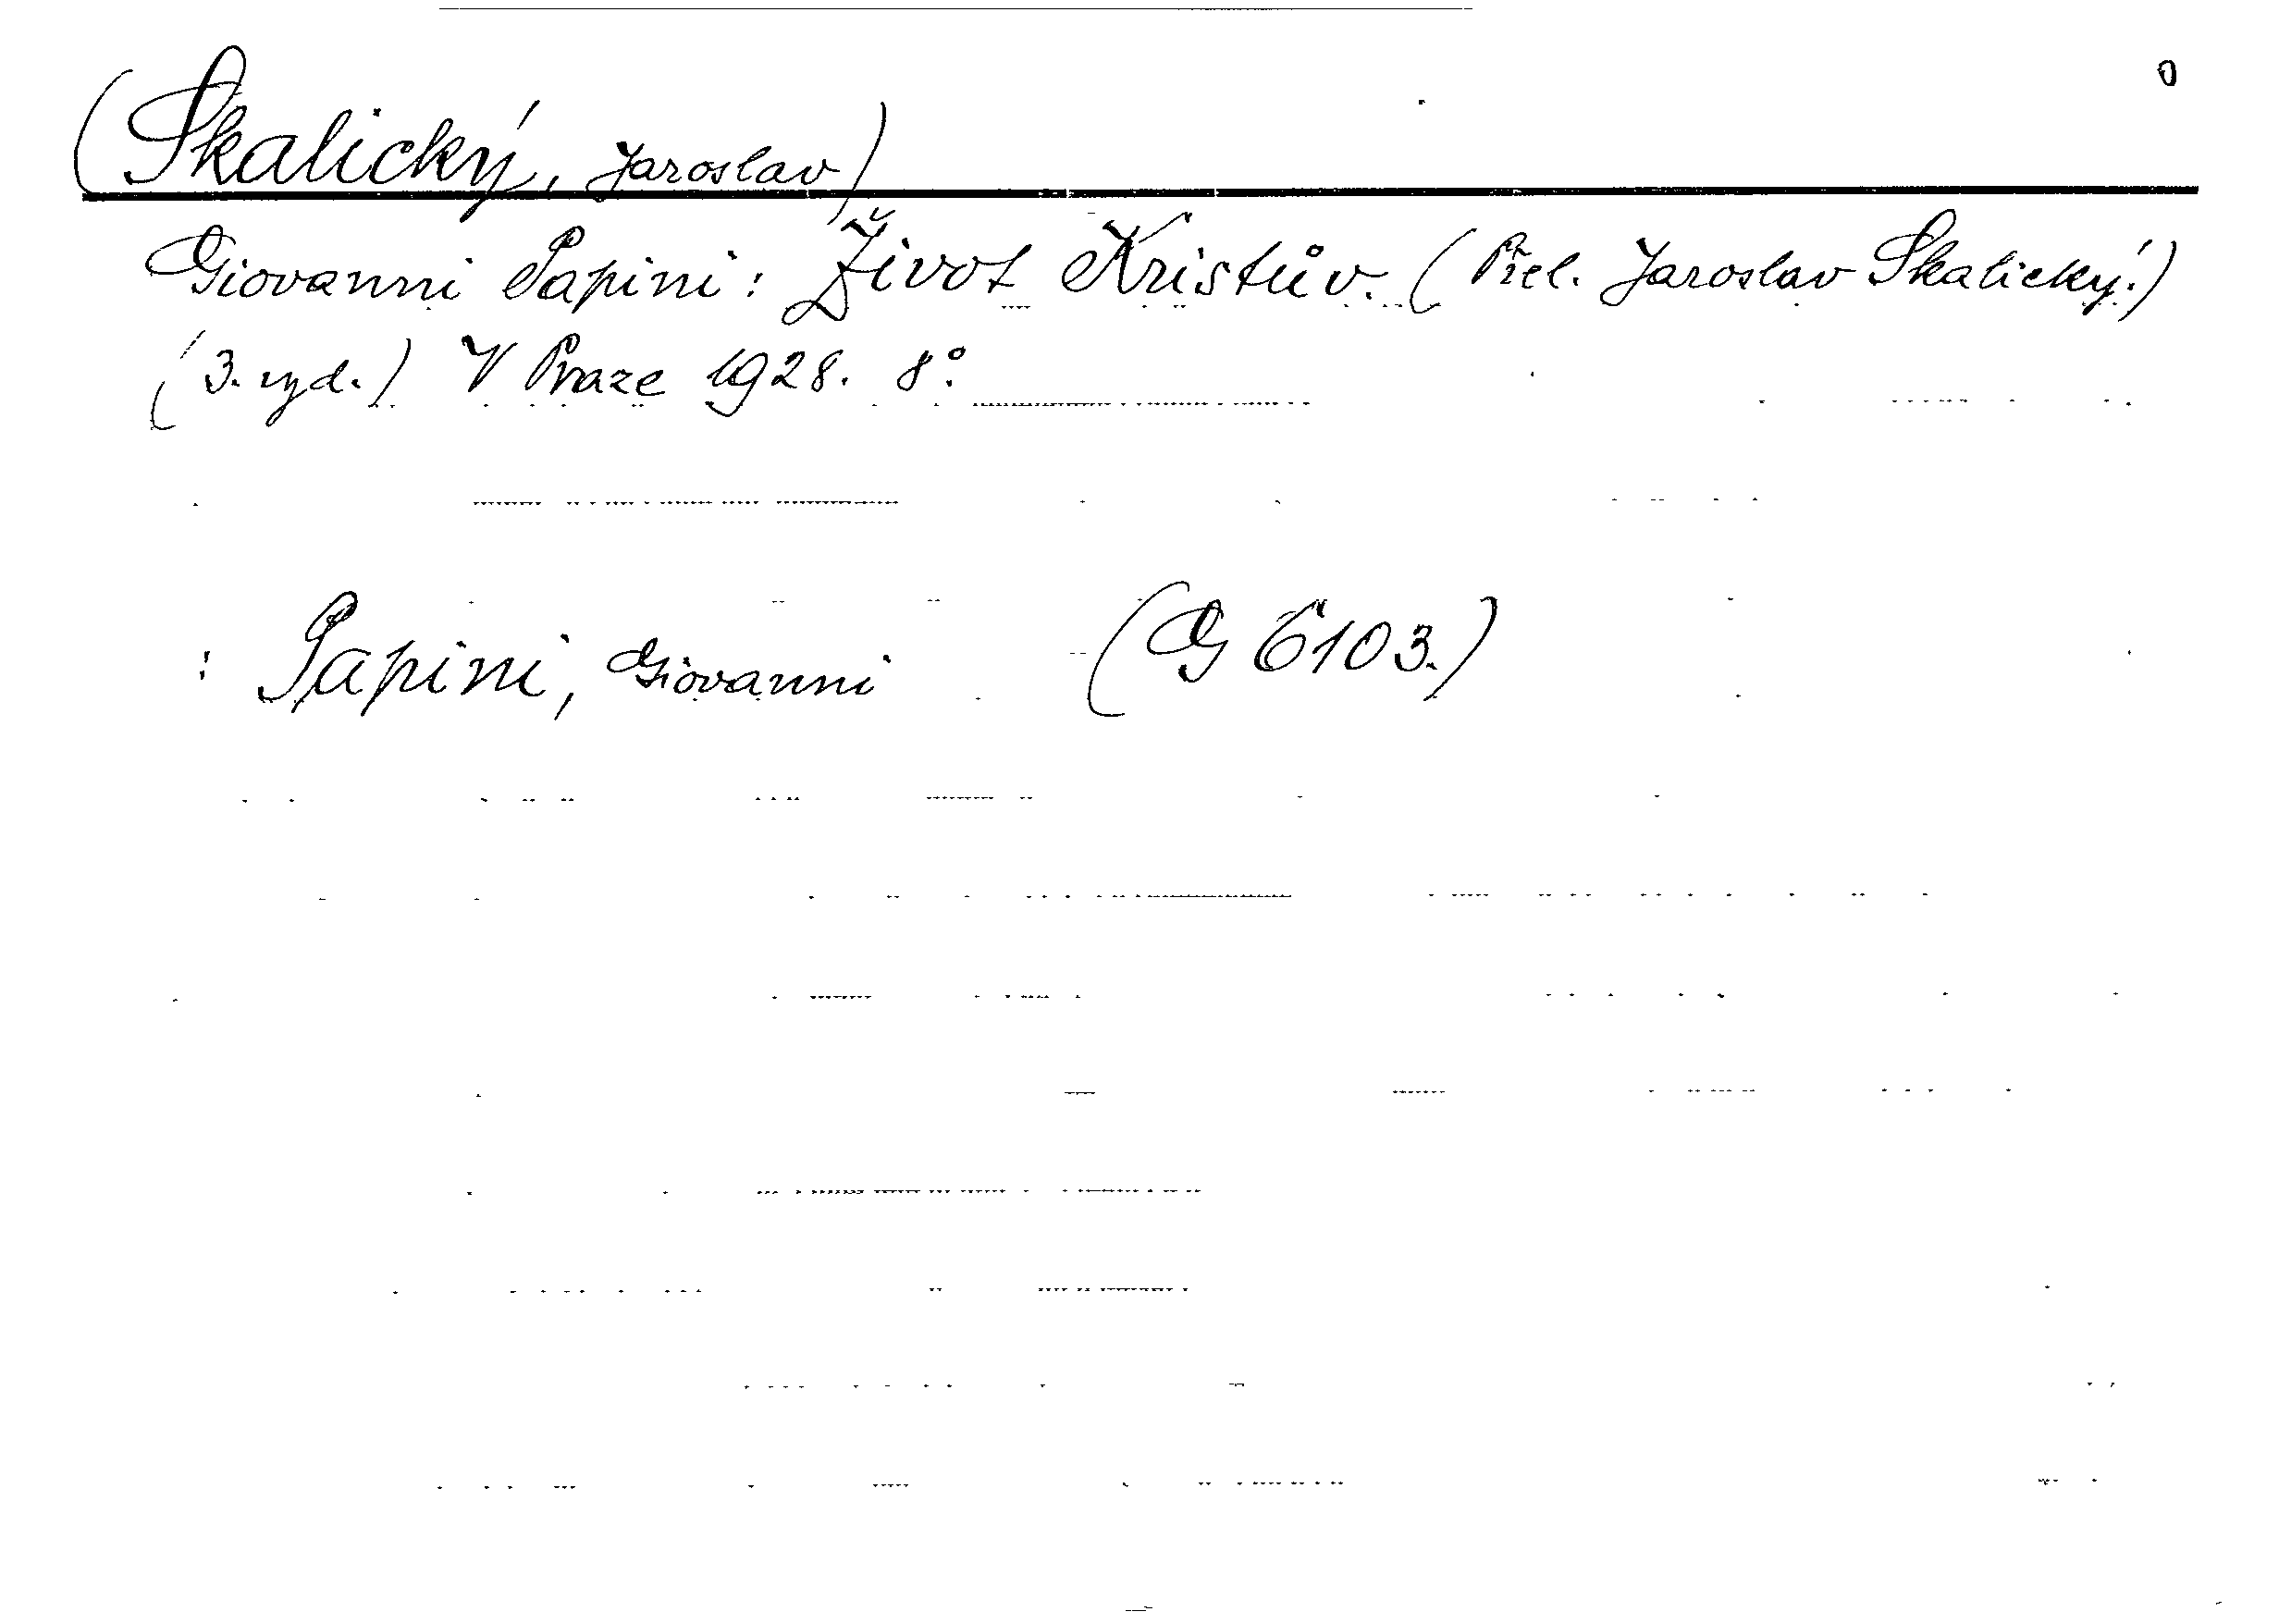 0
(Skalický, Jaroslav)
Giovanni Papini: Život Kristův. (Přel. Jaroslav Skalický.)
(3. vyd.) V Praze 1928. 8°.
: Papini, Giovanni (G 6103.)